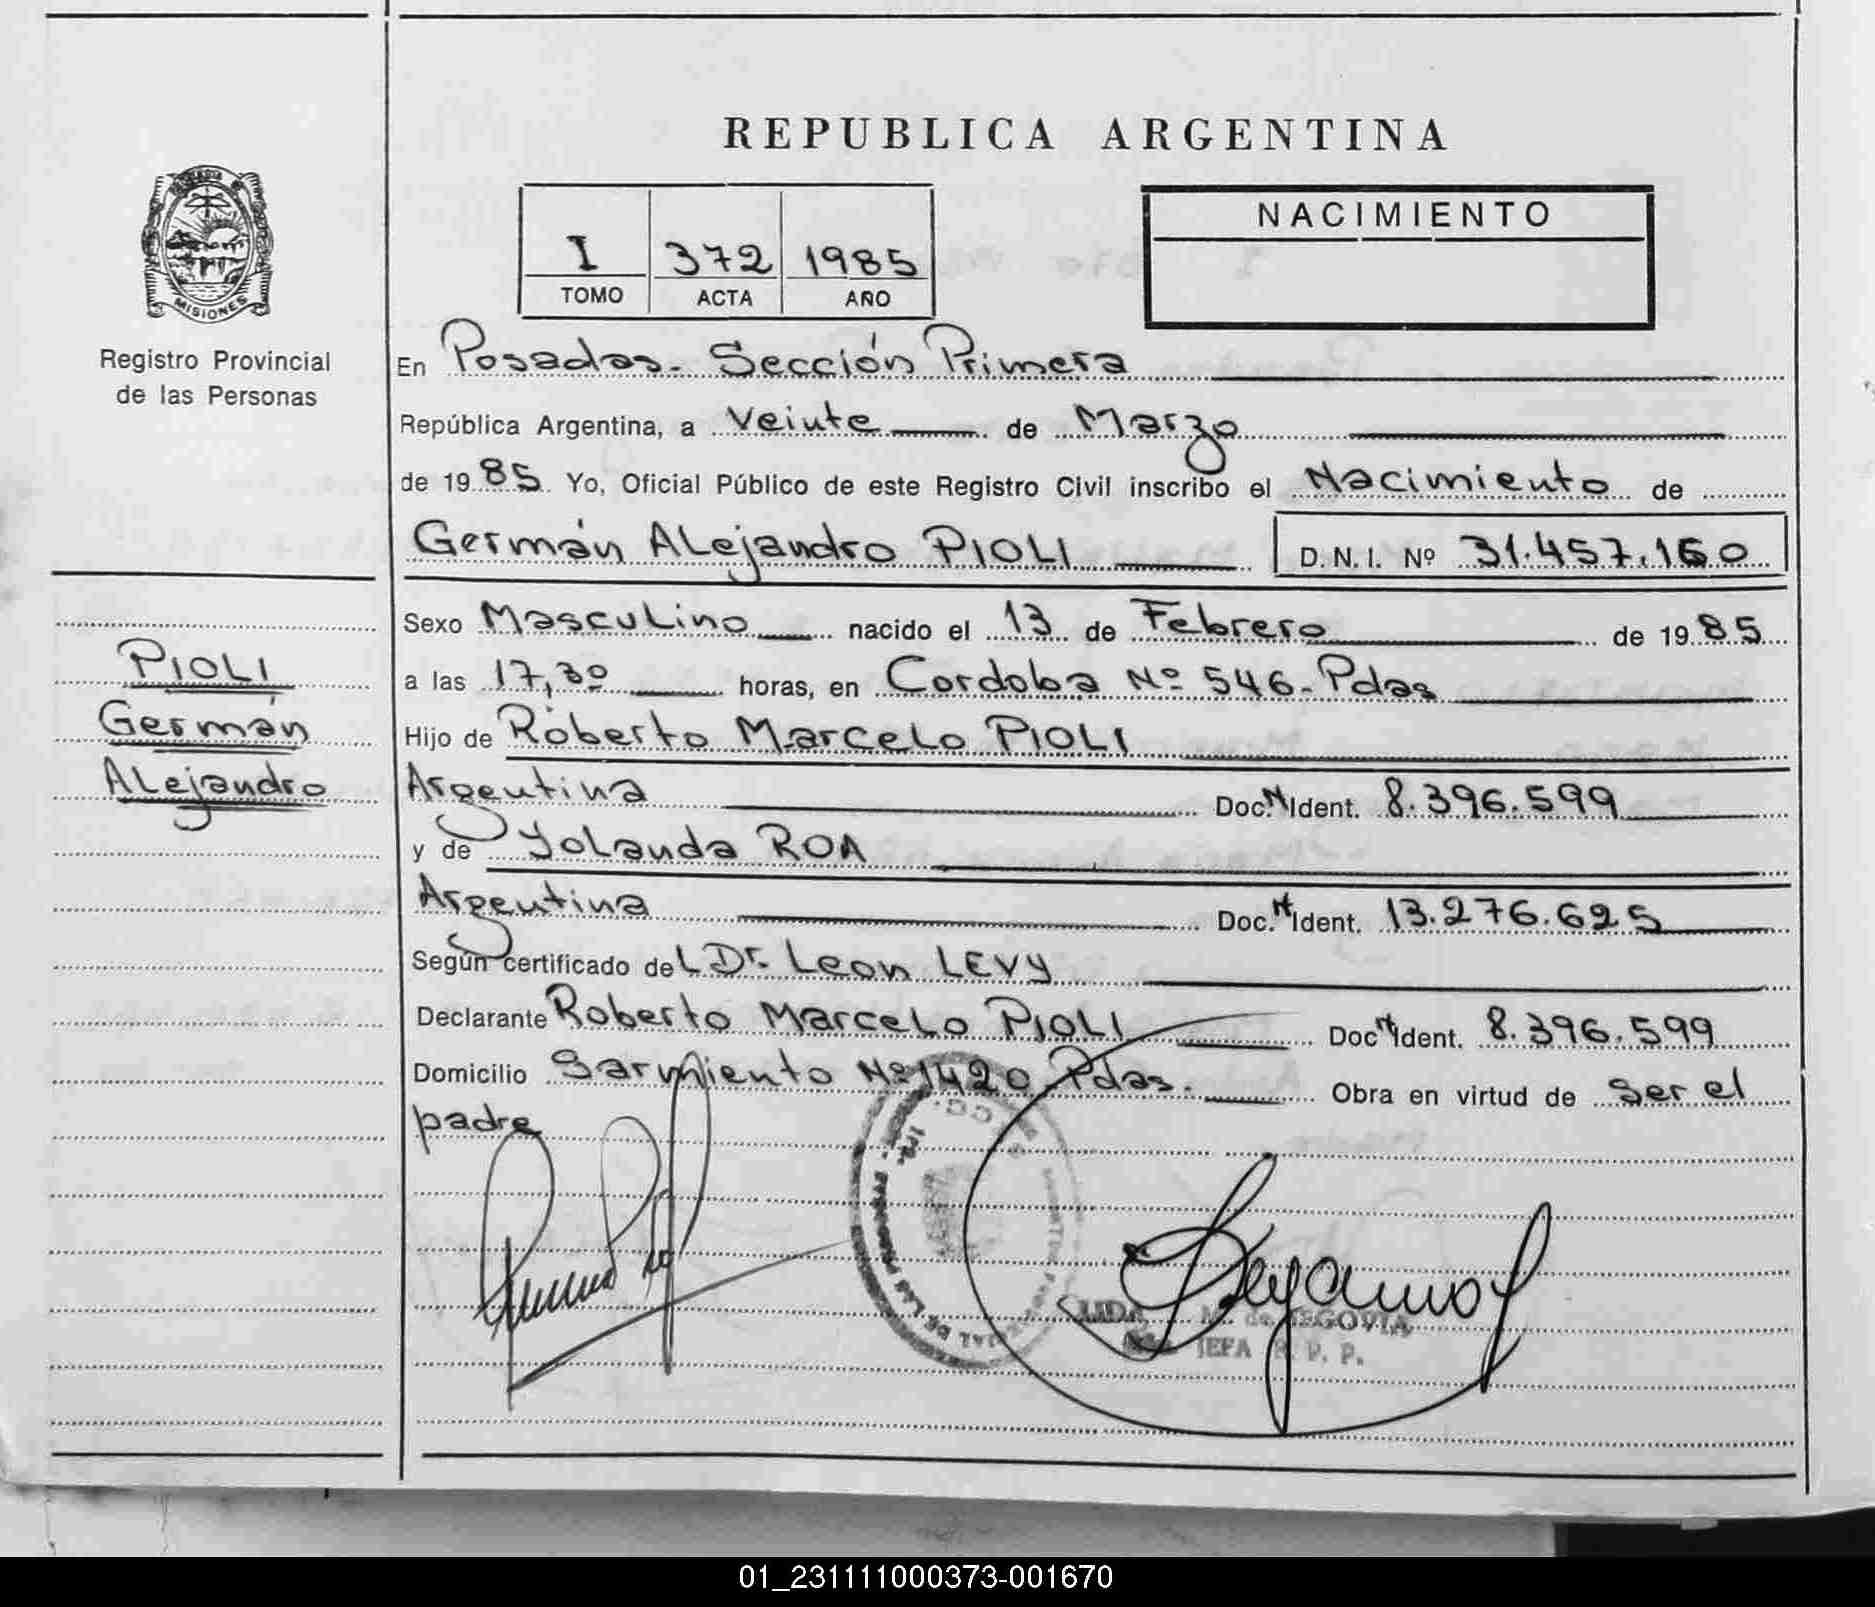 REPUBLICA ARGENTINA
NACIMIENTO
I 372 1985
TOMO ACTA AÑO
MISIONES
Registro Provincial
de las Personas
En Posadas. Sección Primera
República Argentina, a Veinte de Marzo
de 1985 Yo, Oficial Público de este Registro Civil inscribo el Nacimiento de
Germán Alejandro PIOLI D.N.I. Nº 31.457.160
Sexo Masculino nacido el 13 de Febrero de 1985
a las 17,30 horas, en Cordoba Nº 546-Pdas
Hijo de Roberto Marcelo PIOLI
Argentina Doc. Ident. 8.396.599
y de Yolanda ROA
Argentina Doc. Ident. 13.276.625
Según certificado del Dr. Leon LEVY
Declarante Roberto Marcelo PIOLI Doc Ident. 8.396.599
Domicilio Sarmiento Nº 1420 Pdas. Obra en virtud de ser el
padre
PIOLI
Germán
Alejandro
M. de SEGOVIA
JEFA R. P. P.
01_231111000373-001670